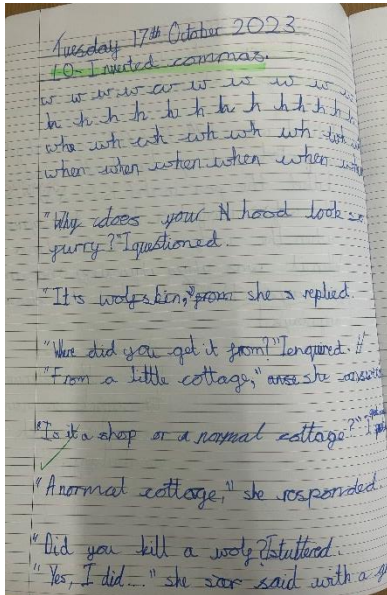 Tuesday 17th October 2023
LO- Inverted commas.
w w w w w w w w w w w
h h h h h h h h h h h
whe wh wh wh wh wh wh
when when when when when when
"Why does your hood look so
furry?" I questioned.
"It's wolfskin," she replied.
"Where did you get it from?" I enquired.
"From a little cottage," she
"Is it a shop or a normal cottage?" I
"A normal cottage," she responded.
"Did you kill a wolf? I stuttered.
"Yes, I did...." she said with a